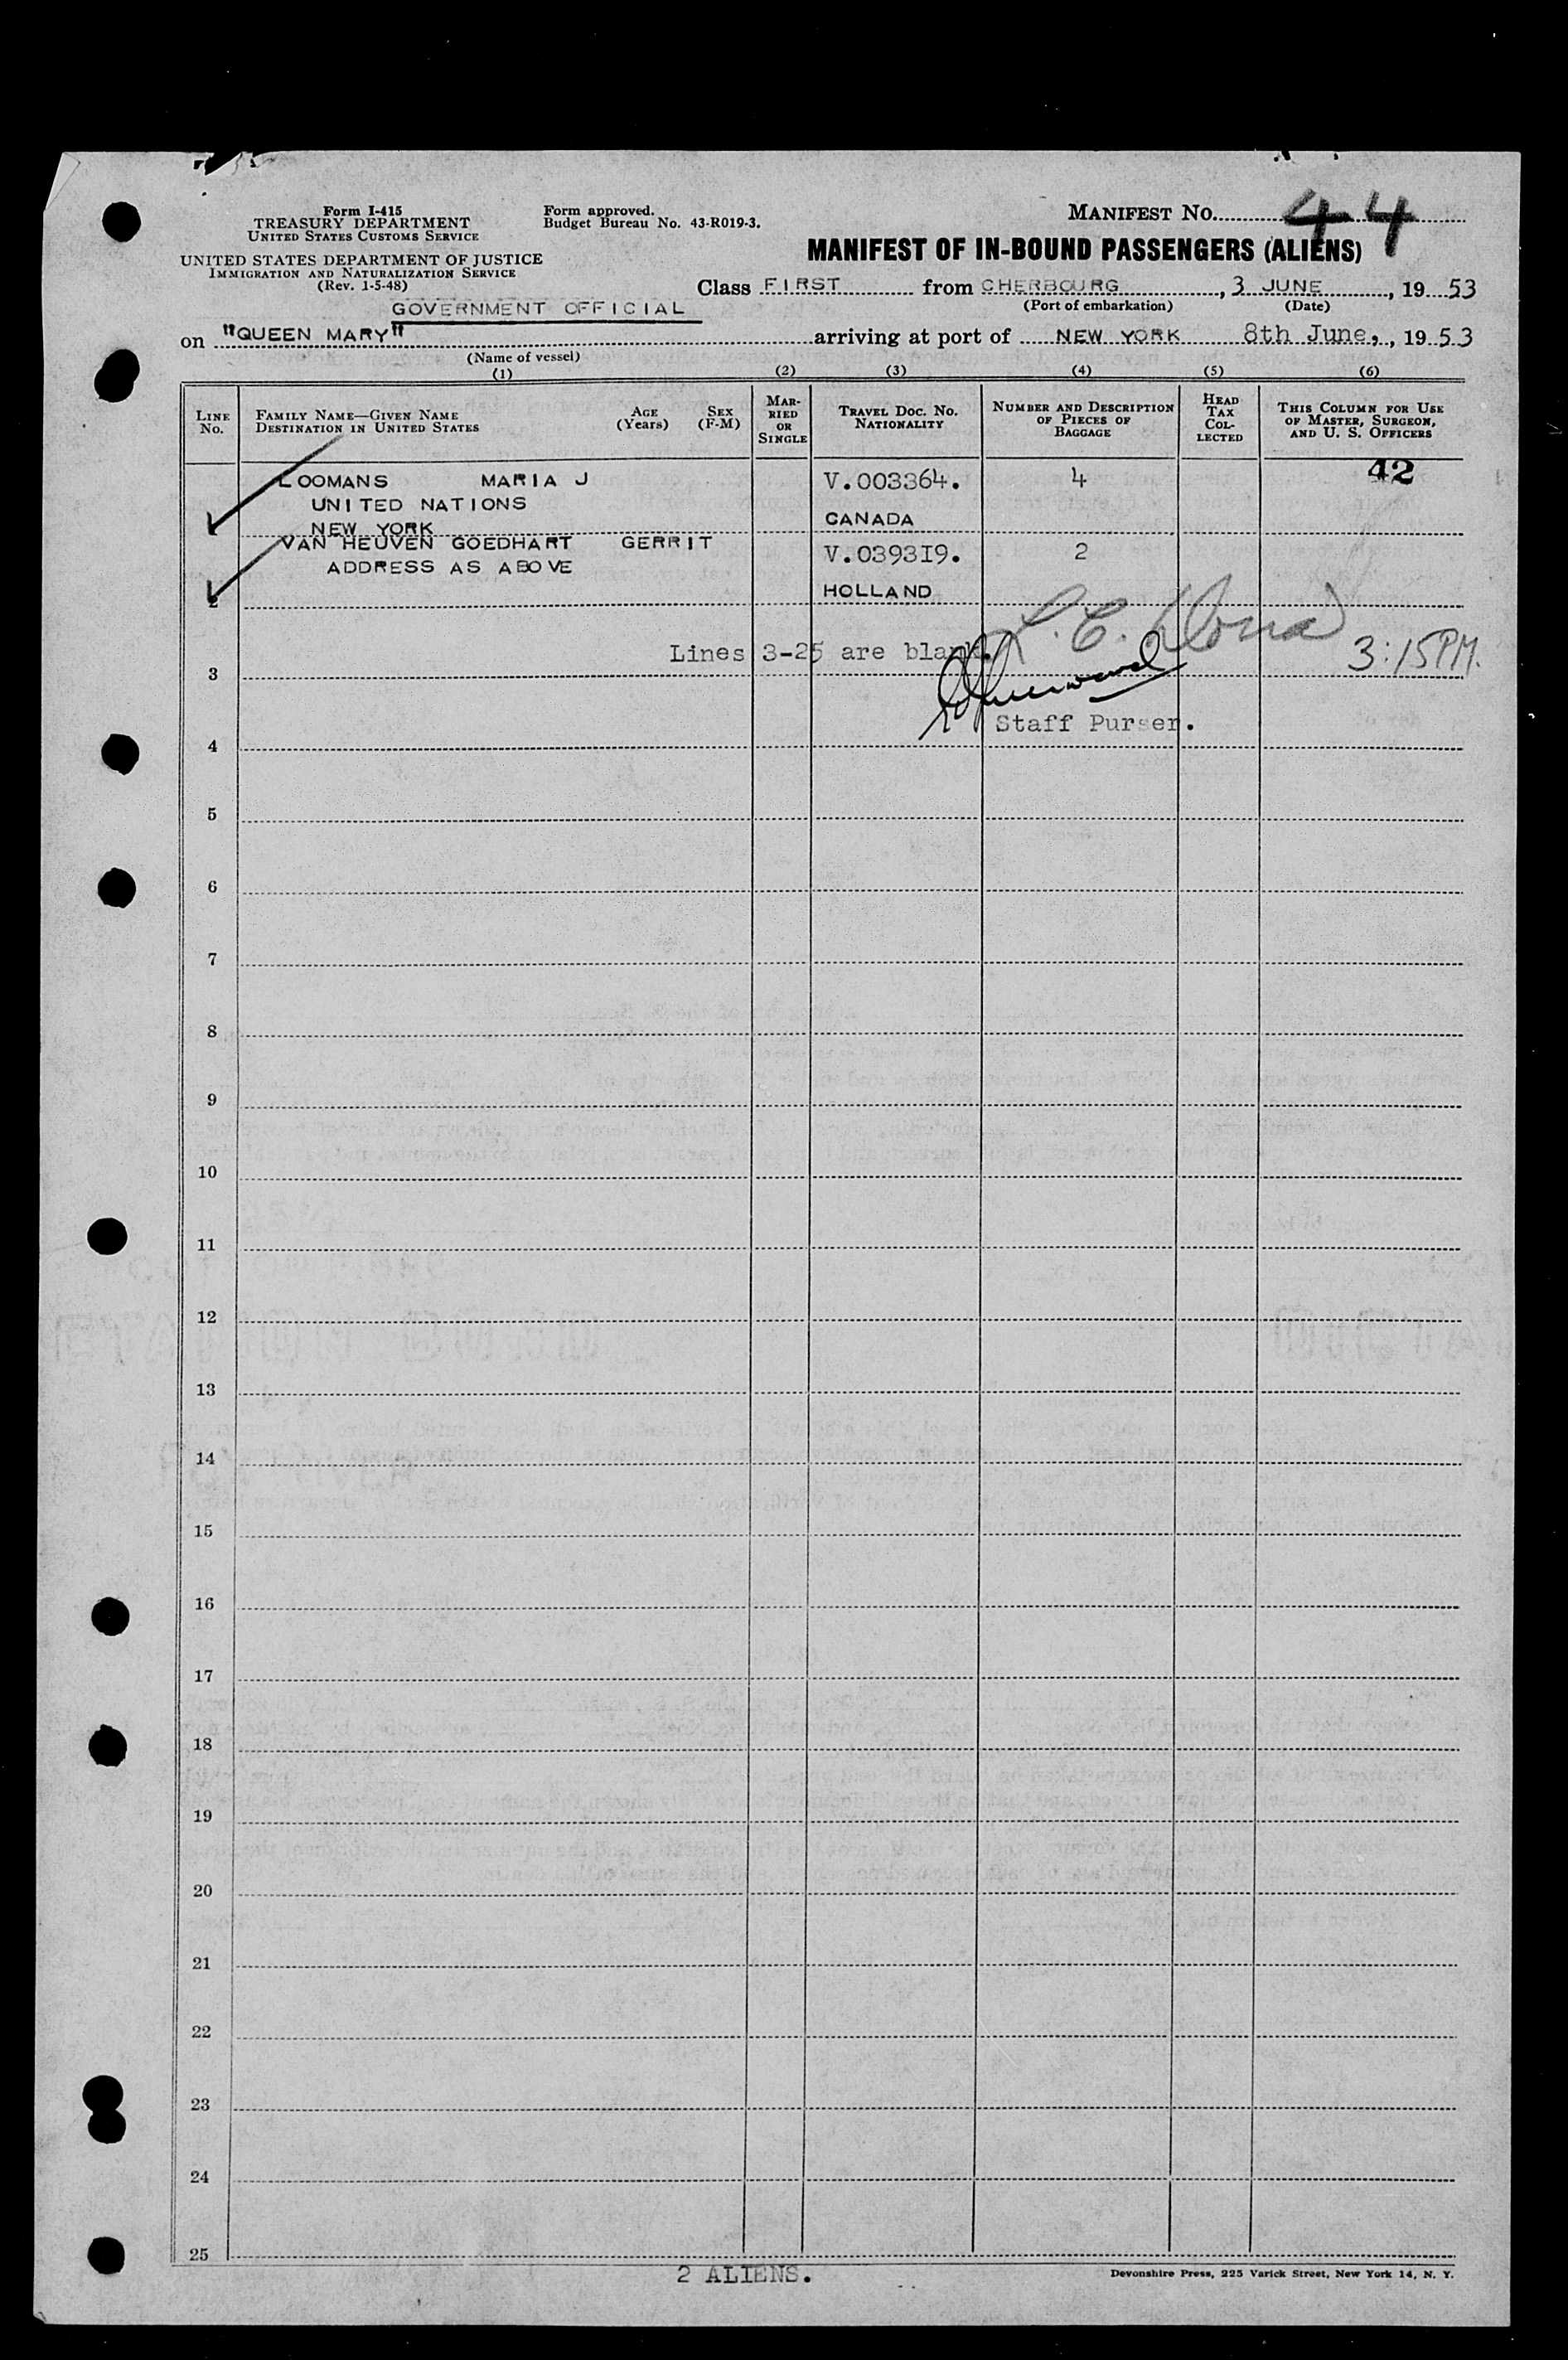 Form I-415
TREASURY DEPARTMENT
UNITED STATES CUSTOMS SERVICE
UNITED STATES DEPARTMENT OF JUSTICE
IMMIGRATION AND NATURALIZATION SERVICE
(Rev. 1-5-48)
Form approved.
Budget Bureau No. 43-R019-3.
MANIFEST NO. 44
MANIFEST OF IN-BOUND PASSENGERS (ALIENS)
Class FIRST from CHERBOURG, 3 JUNE, 19 53
(Port of embarkation) (Date)
GOVERNMENT OFFICIAL
on "QUEEN MARY" arriving at port of NEW YORK 8th June, , 19 53
(Name of vessel)
(1) (2) (3) (4) (5) (6)
LINE NO.
FAMILY NAME—GIVEN NAME
DESTINATION IN UNITED STATES
AGE (Years)
SEX (F-M)
MARRIED OR SINGLE
TRAVEL DOC. NO.
NATIONALITY
NUMBER AND DESCRIPTION OF PIECES OF BAGGAGE
HEAD TAX COLLECTED
THIS COLUMN FOR USE OF MASTER, SURGEON, AND U. S. OFFICERS
LOOMANS MARIA J V.003364. 4 42
UNITED NATIONS
NEW YORK CANADA
VAN HEUVEN GOEDHART GERRIT V.039319. 2
ADDRESS AS ABOVE
2 HOLLAND
Lines 3-25 are blank. 3:15 PM.
3
Staff Purser.
4
5
6
7
8
9
10
11
12
13
14
15
16
17
18
19
20
21
22
23
24
25
2 ALIENS.
Devonshire Press, 225 Varick Street, New York 14, N. Y.